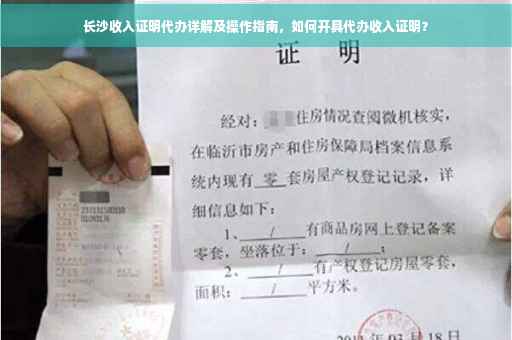 长沙收入证明代办详解及操作指南，如何开具代办收入证明？
证 明
经对：住房情况查阅微机核实，
在临沂市房产和住房保障局档案信息系
统内现有 零 套房屋产权登记记录，详
细信息如下：
1、 / 有商品房网上登记备案
零套，坐落位于： / ；
2、 / 有产权登记房屋零套，
面积： / 平方米。
03 月 18 日